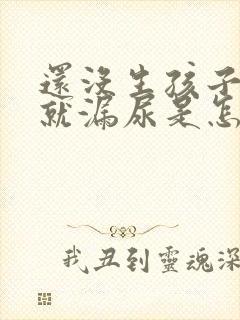 還沒生孩子
就漏尿是怎
我丑到靈魂深